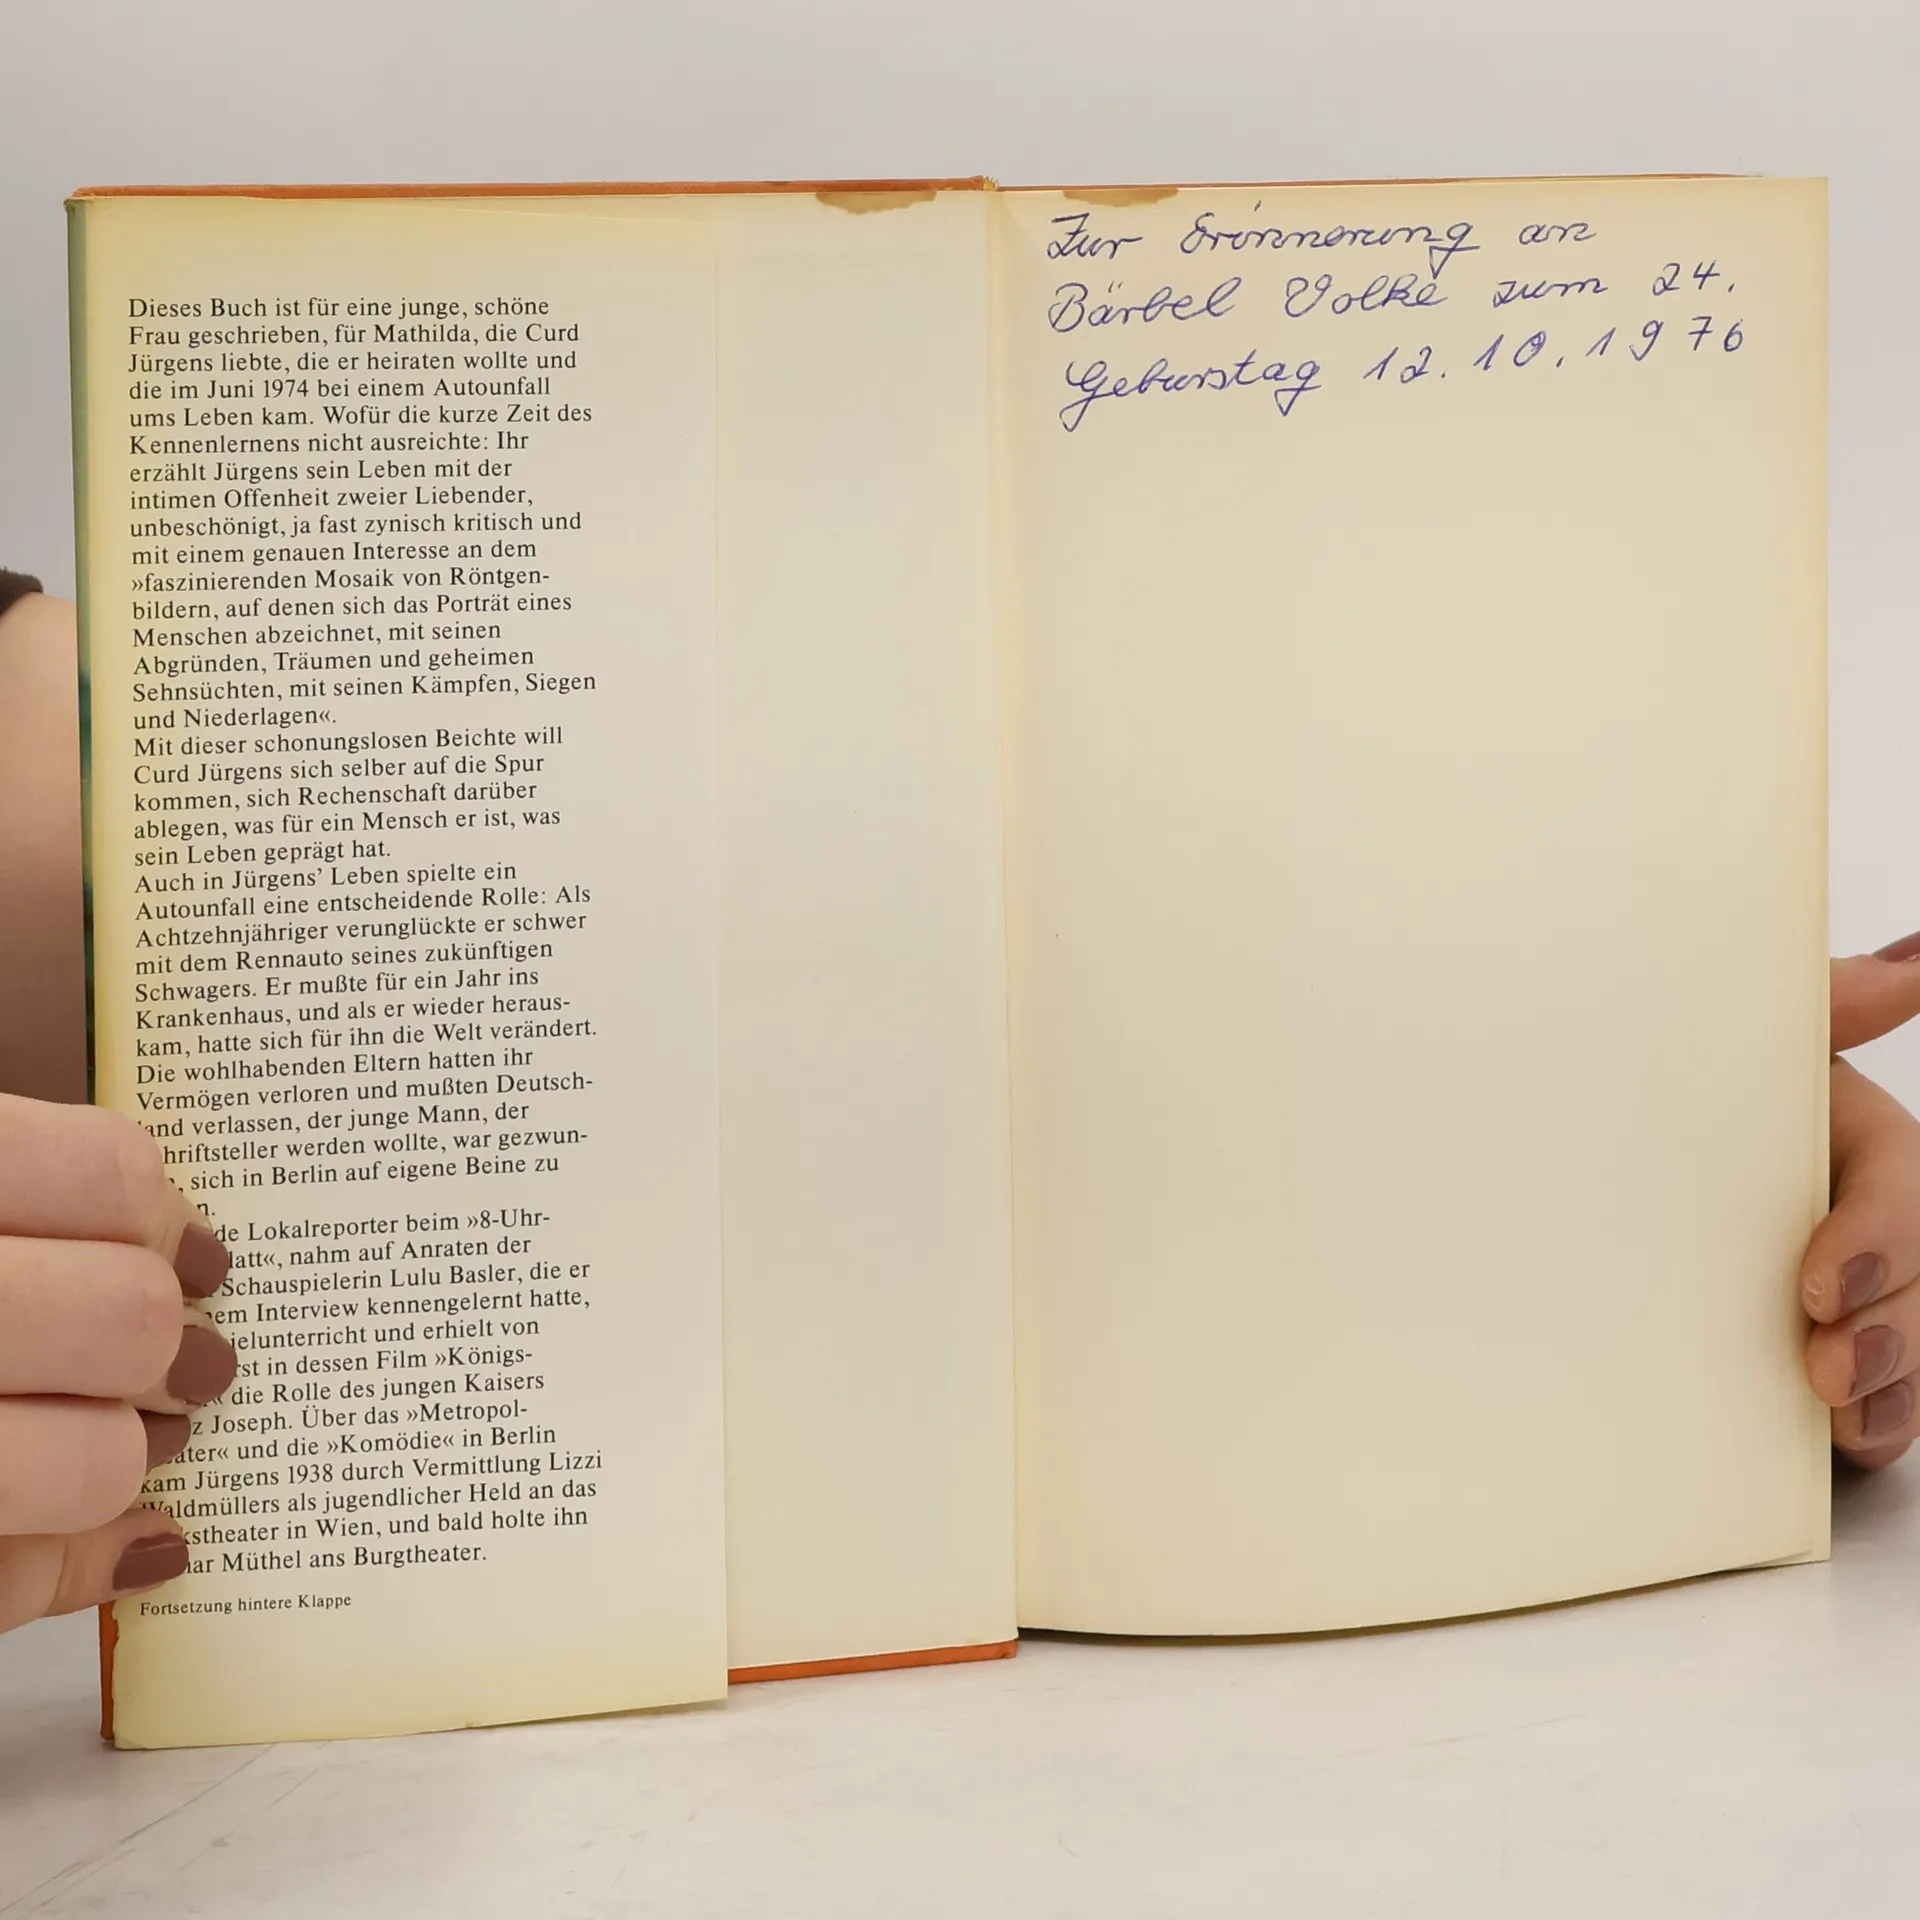 Dieses Buch ist für eine junge, schöne
Frau geschrieben, für Mathilda, die Curd
Jürgens liebte, die er heiraten wollte und
die im Juni 1974 bei einem Autounfall
ums Leben kam. Wofür die kurze Zeit des
Kennenlernens nicht ausreichte: Ihr
erzählt Jürgens sein Leben mit der
intimen Offenheit zweier Liebender,
unbeschönigt, ja fast zynisch kritisch und
mit einem genauen Interesse an dem
»faszinierenden Mosaik von Röntgen-
bildern, auf denen sich das Porträt eines
Menschen abzeichnet, mit seinen
Abgründen, Träumen und geheimen
Sehnsüchten, mit seinen Kämpfen, Siegen
und Niederlagen«.
Mit dieser schonungslosen Beichte will
Curd Jürgens sich selber auf die Spur
kommen, sich Rechenschaft darüber
ablegen, was für ein Mensch er ist, was
sein Leben geprägt hat.
Auch in Jürgens’ Leben spielte ein
Autounfall eine entscheidende Rolle: Als
Achtzehnjähriger verunglückte er schwer
mit dem Rennauto seines zukünftigen
Schwagers. Er mußte für ein Jahr ins
Krankenhaus, und als er wieder heraus-
kam, hatte sich für ihn die Welt verändert.
Die wohlhabenden Eltern hatten ihr
Vermögen verloren und mußten Deutsch-
and verlassen, der junge Mann, der
hriftsteller werden wollte, war gezwun-
, sich in Berlin auf eigene Beine zu
n.
de Lokalreporter beim »8-Uhr-
latt«, nahm auf Anraten der
Schauspielerin Lulu Basler, die er
em Interview kennengelernt hatte,
ielunterricht und erhielt von
rst in dessen Film »Königs-
« die Rolle des jungen Kaisers
z Joseph. Über das »Metropol-
ater« und die »Komödie« in Berlin
kam Jürgens 1938 durch Vermittlung Lizzi
Waldmüllers als jugendlicher Held an das
kstheater in Wien, und bald holte ihn
ar Müthel ans Burgtheater.
Fortsetzung hintere Klappe
Zur Erinnerung an
Bärbel Volke zum 24.
Geburstag 12.10.1976